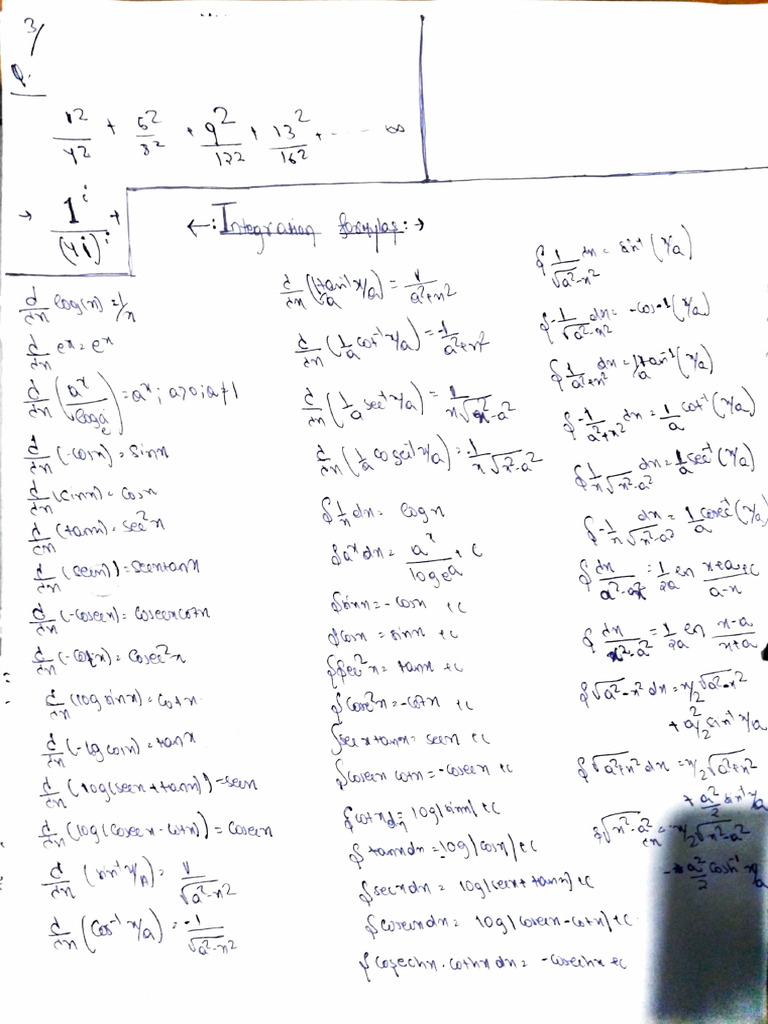 3/
Q.
1²/4² + 5²/8² + 9²/12² + 13²/16² + ----- ∞
→ 1^i/(4i)^i +
←: Integration formulas: →
d/dx log(x) = 1/x
d/dx e^x = e^x
d/dx (a^x/log_e a) = a^x ; a>0; a≠1
d/dx (-cosx) = sinx
d/dx (sinx) = cosx
d/dx (tanx) = sec²x
d/dx (secx) = secxtanx
d/dx (-cosecx) = cosecxcotx
d/dx (-cotx) = cosec²x
d/dx (log sinx) = cotx
d/dx (-log cosx) = tanx
d/dx (log(secx + tanx)) = secx
d/dx (log(cosecx - cotx)) = cosecx
d/dx (sin⁻¹ x/a) = 1/√a²-x²
d/dx (cos⁻¹ x/a) = -1/√a²-x²
d/dx (1/a tan⁻¹ x/a) = 1/a²+x²
d/dx (1/a cot⁻¹ x/a) = -1/a²+x²
d/dx (1/a sec⁻¹ x/a) = 1/x√x²-a²
d/dx (1/a cosec⁻¹ x/a) = -1/x√x²-a²
∫ 1/x dx = logx
∫ a^x dx = a^x/log_e a + c
∫ sinx = -cosx + c
∫ cosx = sinx + c
∫ sec²x = tanx + c
∫ cosec²x = -cotx + c
∫ secx tanx = secx + c
∫ cosecx cotx = -cosecx + c
∫ cotx dx = log|sinx| + c
∫ tanx dx = -log|cosx| + c
∫ secx dx = log|secx + tanx| + c
∫ cosecx dx = log|cosecx - cotx| + c
∫ cosechx . cothx dx = -cosechx + c
∫ 1/√a²-x² dx = sin⁻¹ (x/a)
∫ -1/√a²-x² dx = -cos⁻¹ (x/a)
∫ 1/a²+x² dx = 1/a tan⁻¹ (x/a)
∫ -1/a²+x² dx = 1/a cot⁻¹ (x/a)
∫ 1/x√x²-a² dx = 1/a sec⁻¹ (x/a)
∫ -1/x√x²-a² dx = 1/a cosec⁻¹ (x/a)
∫ dx/a²-x² = 1/2a ln x+a/a-x + c
∫ dx/x²-a² = 1/2a ln x-a/x+a
∫ √a²-x² dx = x/2 √a²-x²
+ a²/2 sin⁻¹ x/a
∫ √a²+x² dx = x/2 √a²+x²
+ a²/2 sin⁻¹ x/a
∫ √x²-a² dx = x/2 √x²-a²
- a²/2 cosh⁻¹ x/a